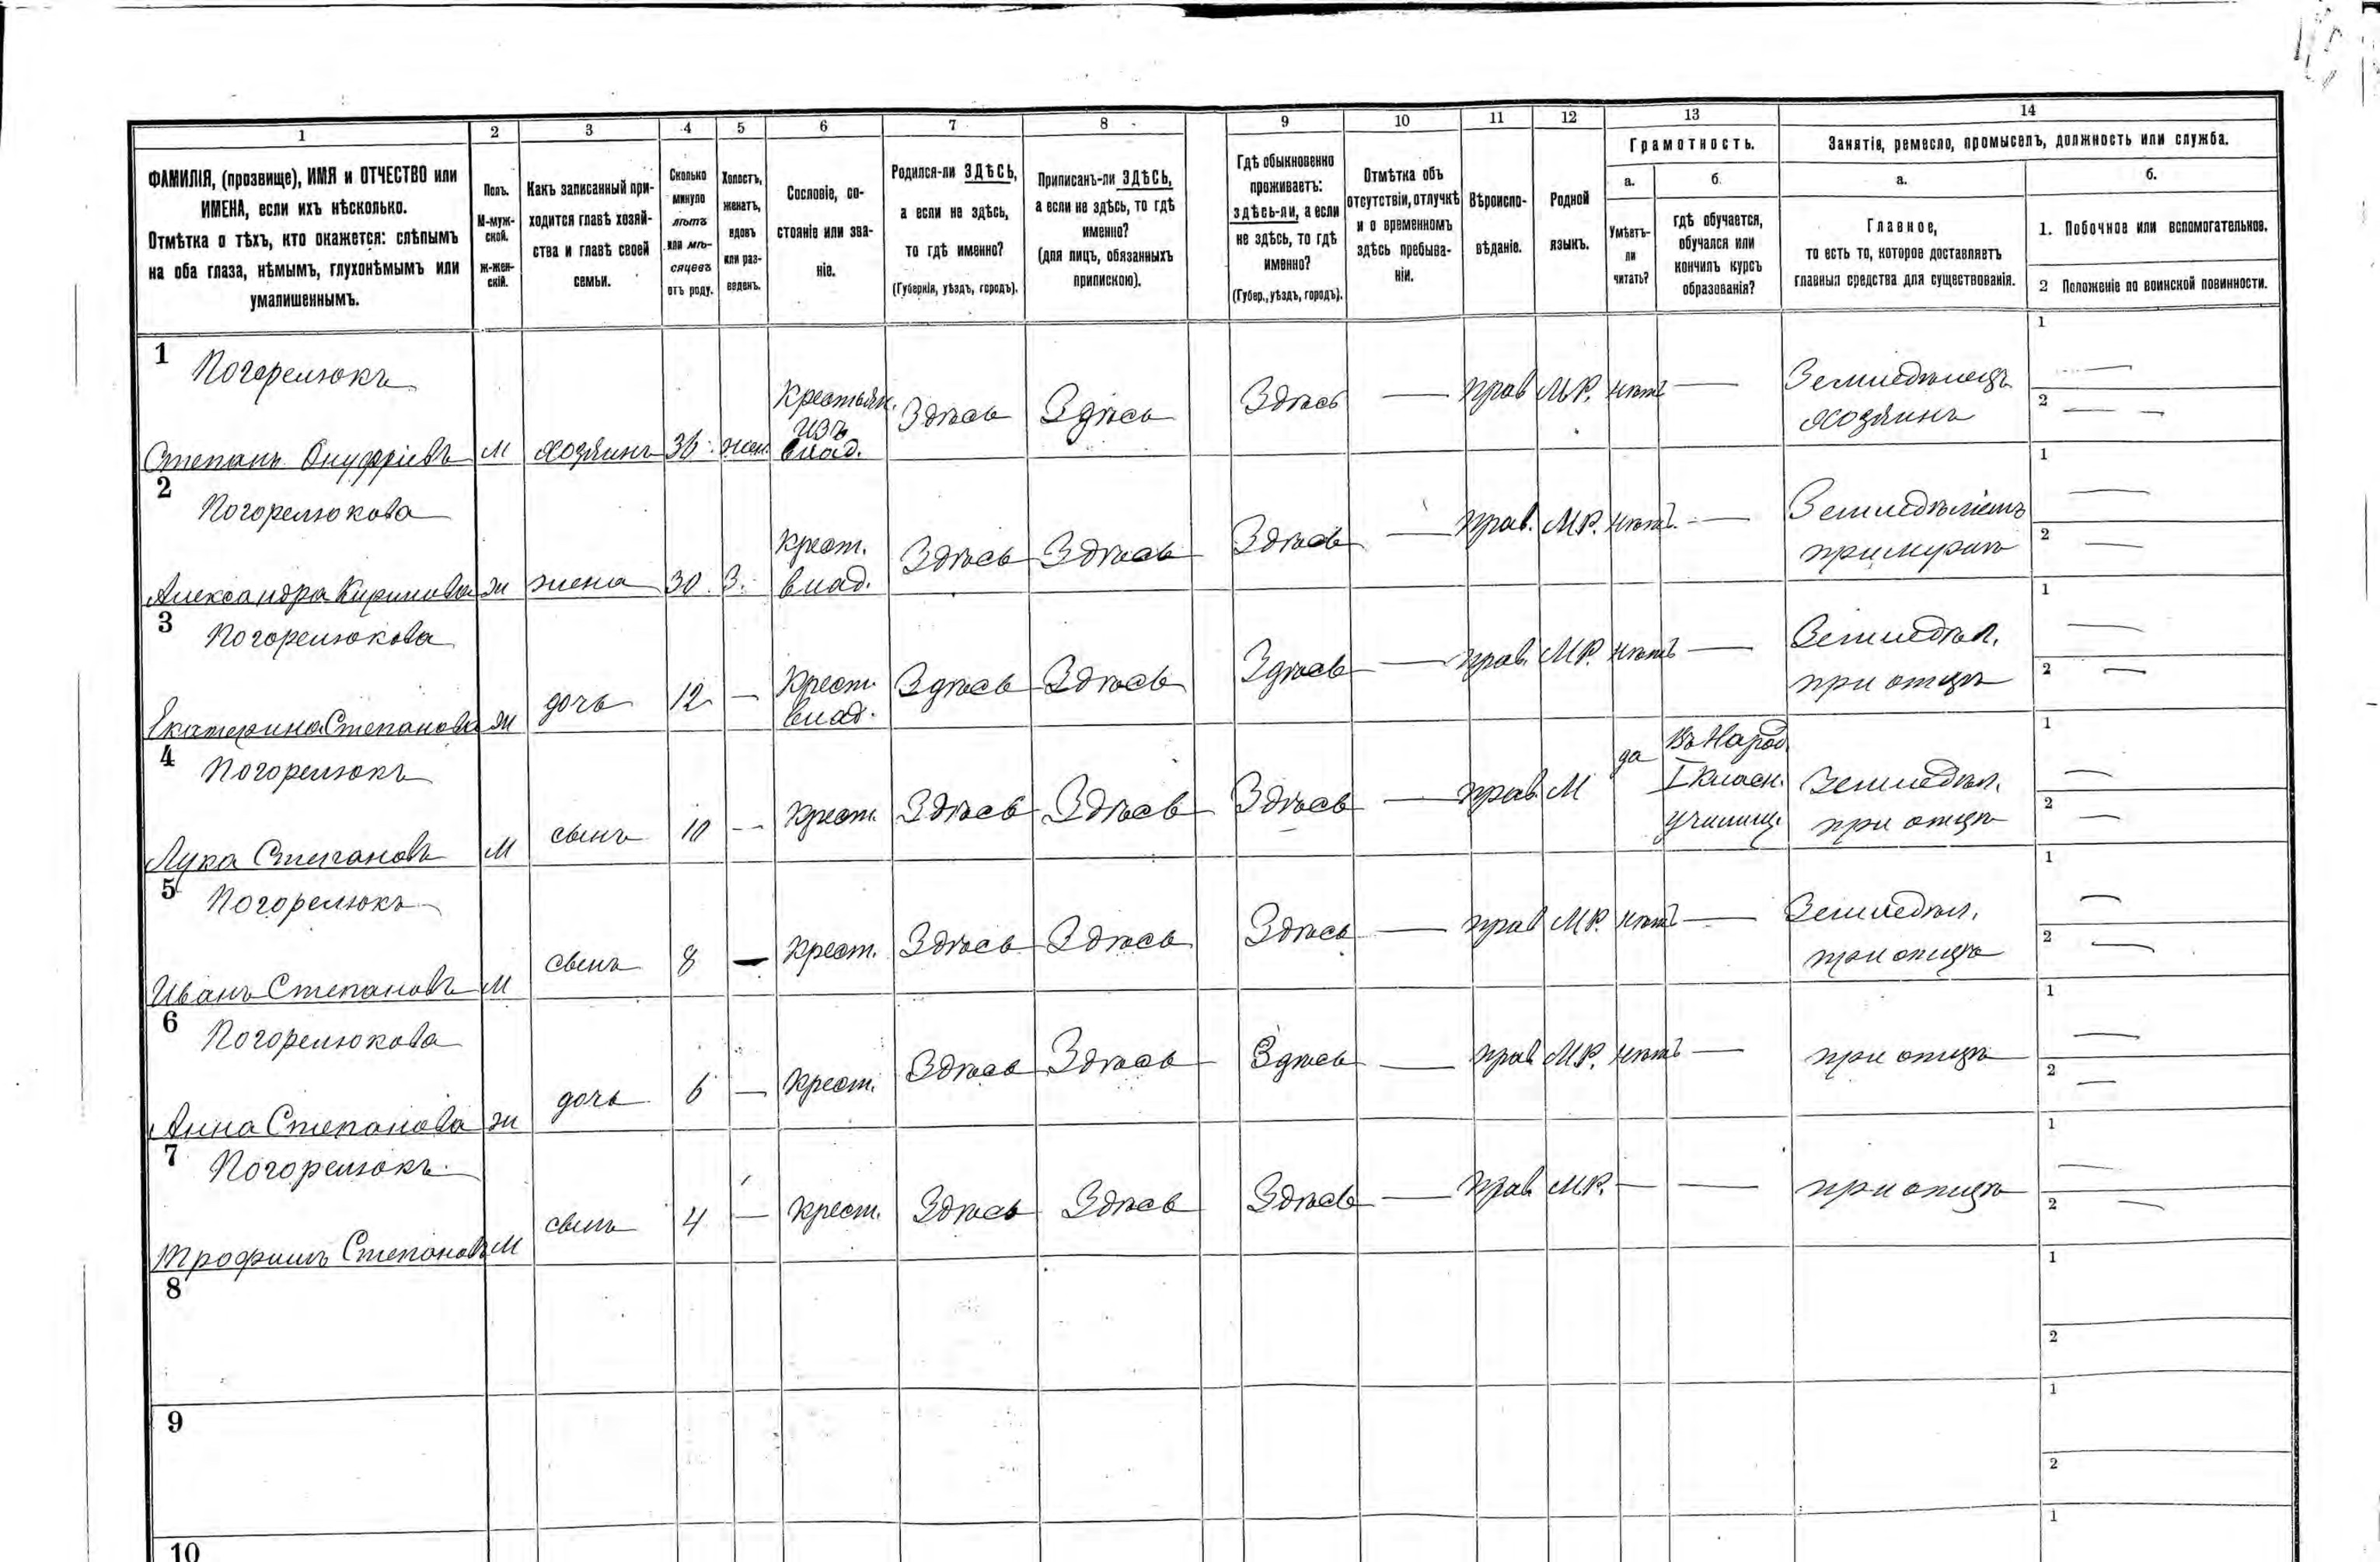 1 2 3 4 5 6 7 8 9 10 11 12 13 14
ФАМИЛІЯ, (прозвище), ИМЯ и ОТЧЕСТВО или
ИМЕНА, если ихъ нѣсколько.
Отмѣтка о тѣхъ, кто окажется: слѣпымъ
на оба глаза, нѣмымъ, глухонѣмымъ или
умалишеннымъ.
Полъ.
М-муж-
ской.
ж-жен-
скій.
Какъ записанный при-
ходится главѣ хозяй-
ства и главѣ своей
семьи.
Сколько
минуло
лѣтъ
или мѣ-
сяцевъ
отъ роду.
Холостъ,
женатъ,
вдовъ
или раз-
веденъ.
Сословіе, со-
стояніе или зва-
ніе.
Родился-ли ЗДѢСЬ,
а если не здѣсь,
то гдѣ именно?
(Губернія, уѣздъ, городъ).
Приписанъ-ли ЗДѢСЬ,
а если не здѣсь, то гдѣ
именно?
(для лицъ, обязанныхъ
припискою).
Гдѣ обыкновенно
проживаетъ:
здѣсь-ли, а если
не здѣсь, то гдѣ
именно?
(Губер., уѣздъ, городъ).
Отмѣтка объ
отсутствіи, отлучкѣ
и о временномъ
здѣсь пребыва-
ніи.
Вѣроиспо-
вѣданіе.
Родной
языкъ.
Грамотность.
а.
Умѣетъ-
ли
читать?
б.
гдѣ обучается,
обучался или
кончилъ курсъ
образованія?
Занятія, ремесло, промыселъ, должность или служба.
а.
Главное,
то есть то, которое доставляетъ
главныя средства для существованія.
б.
1. Побочное или вспомогательное.
2 Положеніе по воинской повинности.
1
Погорелюкъ
Степанъ Онуфріевъ М хозяинъ 36 жен.
Крестьян.
изъ
влад.
Здѣсь Здѣсь Здѣсь — прав М.Р. нѣтъ —
Земледѣлецъ
хозяинъ
1 —
2 — —
2
Погорелюкова
Александра Кирилова ж жена 30. З.
крест.
влад.
Здѣсь Здѣсь Здѣсь — прав. М.Р. нѣтъ. —
Земледѣліемъ
при мужѣ
1 —
2 —
3
Погорелюкова
Екатерина Степанова ж дочь 12 —
Крест.
влад.
Здѣсь Здѣсь Здѣсь — прав. М.Р. нѣтъ —
Земледѣл.
при отцѣ
1 —
2 —
4
Погорелюкъ
Лука Степановъ М сынъ 10 — Крест. Здѣсь Здѣсь Здѣсь — прав. М да
въ Народ
I класн.
училищ.
Земледѣл.
при отцѣ
1 —
2 —
5
Погорелюкъ
Иванъ Степановъ М сынъ 8 — Крест. Здѣсь Здѣсь Здѣсь — прав М.Р. нѣтъ —
Земледѣл.
при отцѣ
1 —
2 —
6
Погорелюкова
Анна Степанова ж дочь 6 — Крест. Здѣсь Здѣсь Здѣсь — прав М.Р. нѣтъ — при отцѣ
1 —
2 —
7
Погорелюкъ
Трофимъ Степановъ М сынъ 4 — крест. Здѣсь Здѣсь Здѣсь — прав. М.Р. — — при отцѣ
1 —
2 —
8
1
2
9
1
2
10
1